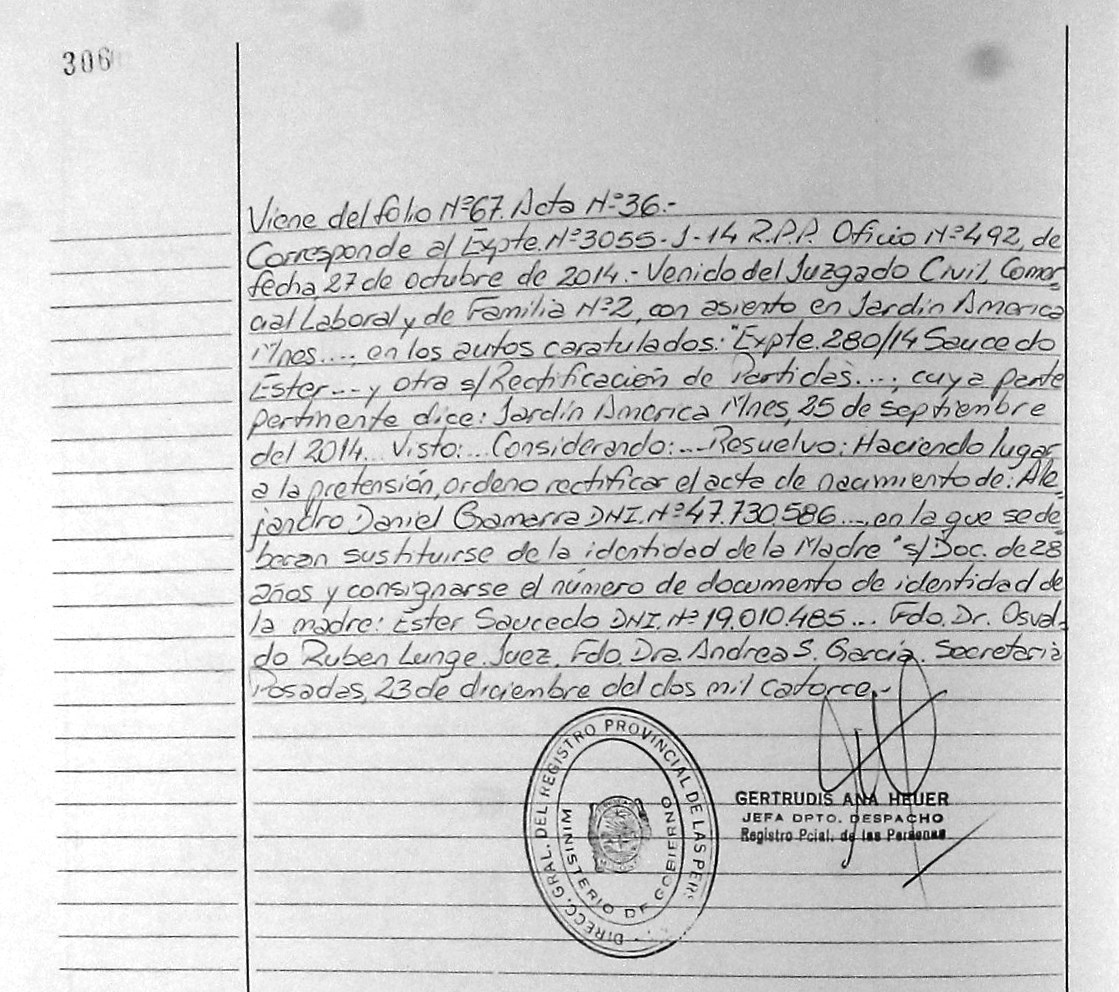 306
Viene del folio Nº67. Acta Nº36.-
Corresponde al Expte. Nº3055-J-14 R.P.P. Oficio Nº492, de
fecha 27 de octubre de 2014.- Venido del Juzgado Civil, Comer-
cial Laboral y de Familia Nº2, con asiento en Jardín America
Mnes.... en los autos caratulados: "Expte. 280/14 Saucedo
Ester... y otra s/Rectificación de Partidas...., cuya parte
pertinente dice: Jardín America Mnes, 25 de septiembre
del 2014... Visto:... Considerando:... Resuelvo: Haciendo lugar
a la pretensión, ordeno rectificar el acta de nacimiento de: Ale-
jandro Daniel Gamarra DNI. Nº47.730.586...., en la que se de
beran sustituirse de la identidad de la Madre "s/Doc. de 28
años y consignarse el número de documento de identidad de
la madre: Ester Saucedo DNI. Nº 19.010.485... Fdo. Dr. Osval-
do Ruben Lunge. Juez. Fdo. Dra. Andrea S. Garcia. Secretaria
Posadas, 23 de diciembre del dos mil catorce.-
DIRECC. GRAL. DEL REGISTRO PROVINCIAL DE LAS PERS
MINISTERIO DE GOBIERNO
GERTRUDIS ANA HEUER
JEFA DPTO. DESPACHO
Registro Pcial. de las Personas